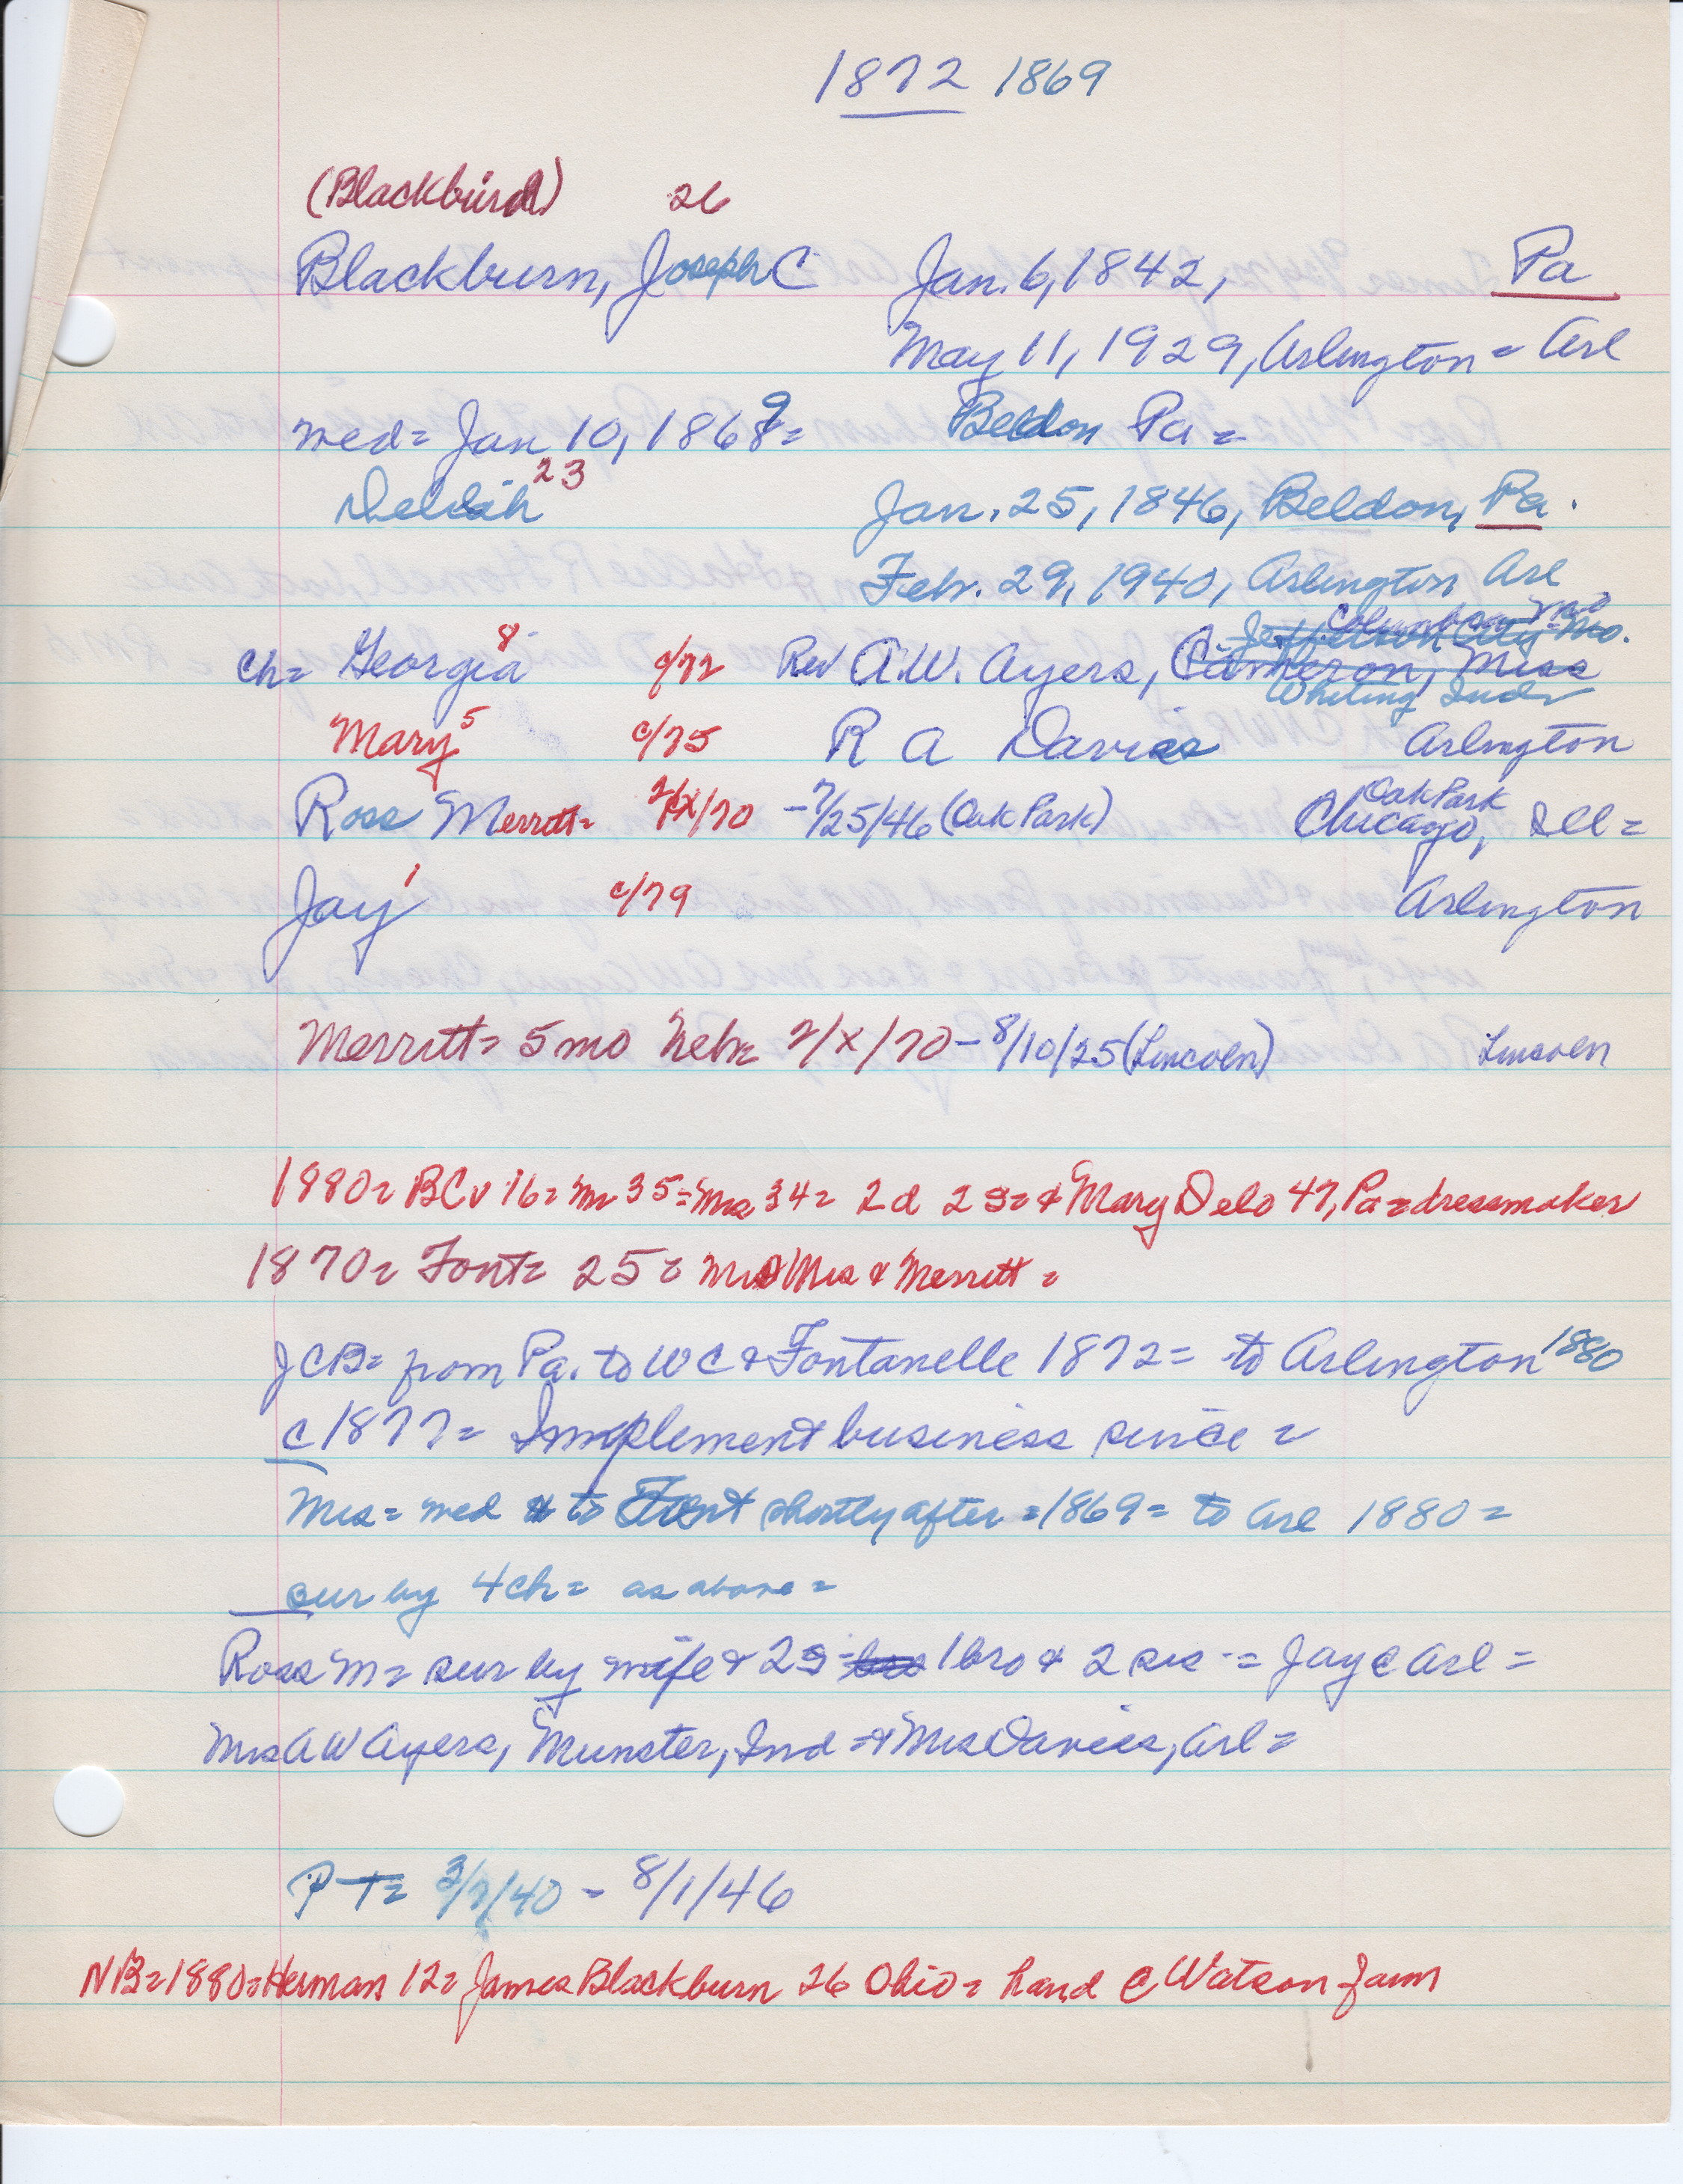 1872 1869
(Blackbird) 26
Blackburn, Joseph C Jan. 6, 1842, Pa
May 11, 1929, Arlington = Arl
med = Jan 10, 1869 = Beldon Pa =
Delilah 23 Jan. 25, 1846, Beldon, Pa.
Feb. 29, 1940, Arlington Arl
Columbia Mo
Jefferson City Mo.
ch = Georgia 8 c/72 Rev A.W. Ayers, Cameron, Miss
Whiting Ind =
Mary 5 c/75 R A Davies Arlington
Oak Park
Ross Merritt = 2/x/70 - 7/25/46 (Oak Park) Chicago, Ill =
Jay 1 c/79 Arlington
Merritt = 5 mo Nebr 2/x/70 - 8/10/25 (Lincoln) Lincoln
1880 = BCv 16 = Mr 35 = Mrs 34 = 2d 2s = & Mary Delo 47, Pa = dressmaker
1870 = Font = 25 = Mr & Mrs & Merritt =
JCB = from Pa. to WC & Fontanelle 1872 = to Arlington 1880
c 1877 = Implement business since =
Mrs = med & to Font shortly after = 1869 = to Arl 1880 =
sur by 4 ch = as above =
Ross M = sur by wife & 2s = bro 1 bro & 2 sis = Jay C Arl =
Mrs A W Ayers, Munster, Ind = & Mrs Davies, Arl =
P T = 3/7/40 - 8/1/46
NB = 1880 = Herman 12 = James Blackburn 26 Ohio = hand C Watson farm